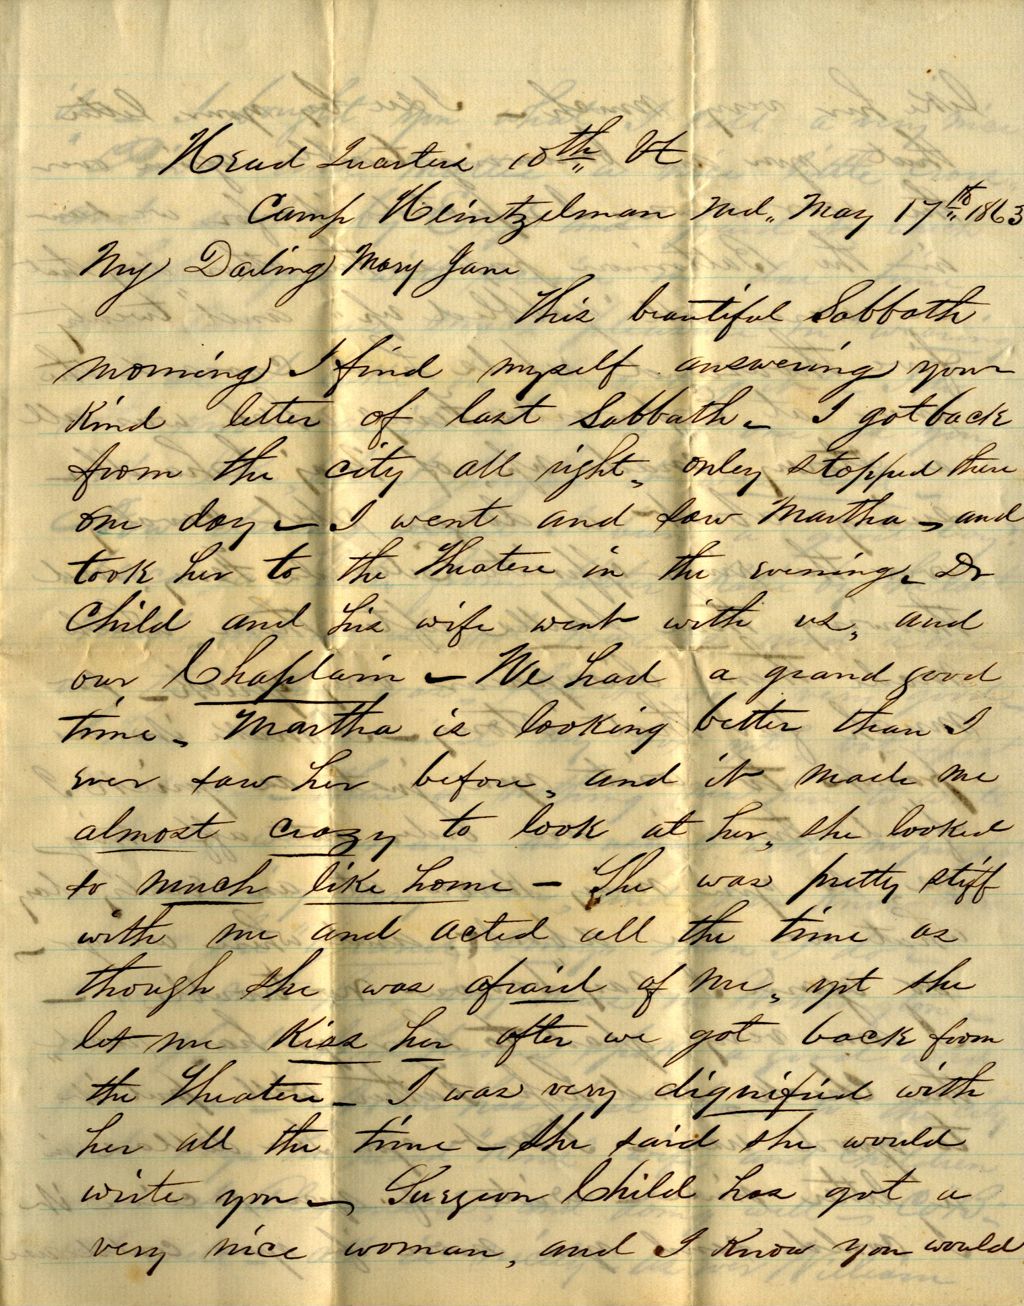 Head Quarters 10th Vt
Camp Heintzelman Md,, May 17th 1863
My Darling Mary Jane
This beautiful Sabbath
morning I find myself answering your
kind letter of last Sabbath - I got back
from the city all right, only stopped there
one day - I went and saw Martha - and
took her to the Theatere in the evening - Dr
Child and his wife went with us, and
our Chaplain - We had a grand good
time - Martha is looking better than I
ever saw her before, and it made me
almost crazy to look at her, she looked
so much like home - She was pretty stiff
with me and acted all the time as
though she was afraid of me, yet she
let me kiss her after we got back from
the Theatere - I was very dignified with
her all the time - She said she would
write you - Surgeon Child has got a
very nice woman, and I know you would